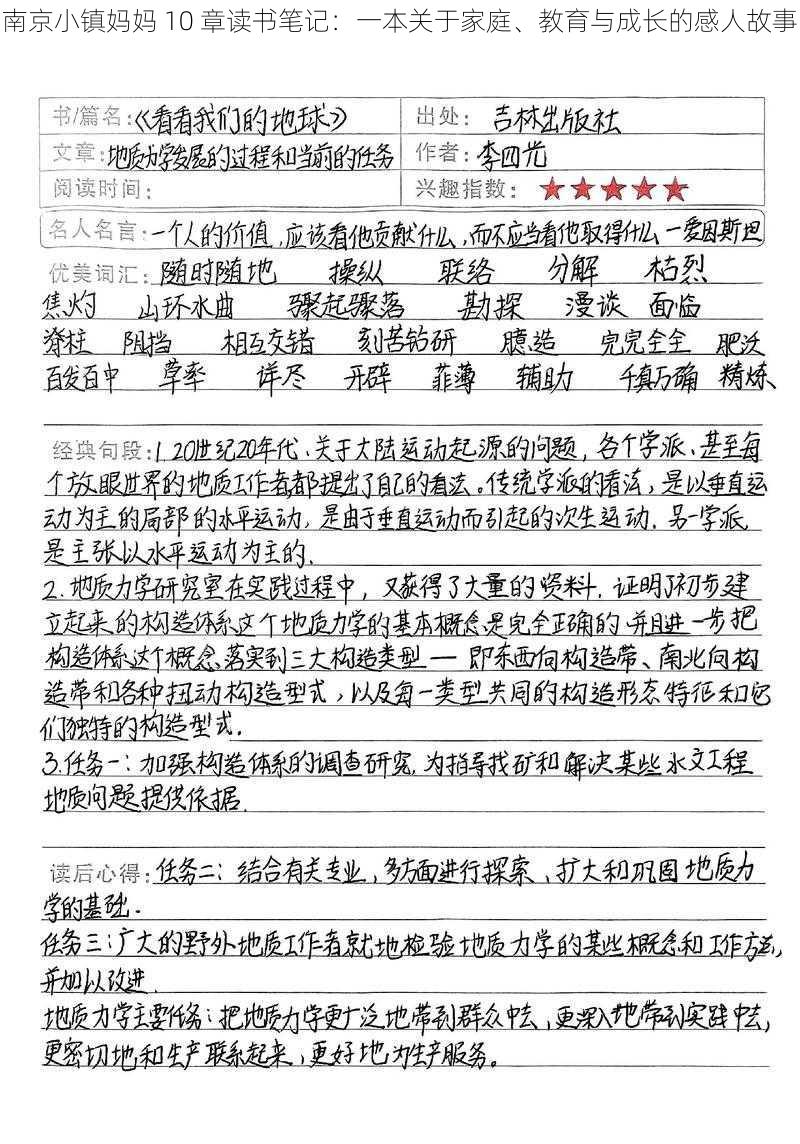 南京小镇妈妈 10 章读书笔记：一本关于家庭、教育与成长的感人故事
书/篇名：《看看我们的地球》 出处：吉林出版社
文章：地质力学发展的过程和当前的任务 作者：李四光
阅读时间： 兴趣指数：★★★★★
名人名言：一个人的价值，应该看他贡献什么，而不应当看他取得什么 —爱因斯坦
优美词汇：随时随地 操纵 联络 分解 枯烈
焦灼 山环水曲 骤起骤落 勘探 漫谈 面临
脊柱 阻挡 相互交错 刻苦钻研 臆造 完完全全 肥沃
百发百中 草率 详尽 开辟 菲薄 辅助 千真万确 精炼
经典句段：1.20世纪20年代、关于大陆运动起源的问题，各个学派、甚至每
个放眼世界的地质工作者都提出了自己的看法。传统学派的看法，是以垂直运
动为主的局部的水平运动，是由于垂直运动而引起的次生运动. 另一学派
是主张以水平运动为主的.
2.地质力学研究室在实践过程中，又获得了大量的资料. 证明了初步建
立起来的构造体系这个地质力学的基本概念是完全正确的 并且进一步把
构造体系这个概念落实到三大构造类型 — 即东西向构造带、南北向构
造带和各种扭动构造型式，以及每一类型共同的构造形态特征和它
们独特的构造型式.
3.任务一：加强构造体系的调查研究，为指导找矿和解决某些水文工程
地质问题提供依据.
读后心得：任务二：结合有关专业，多方面进行探索、扩大和巩固地质力
学的基础.
任务三：广大的野外地质工作者就地检验地质力学的某些概念和工作方法，
并加以改进.
地质力学主要任务：把地质力学更广泛地带到群众中去，更深入地带到实践中去，
更密切地和生产联系起来，更好地为生产服务。